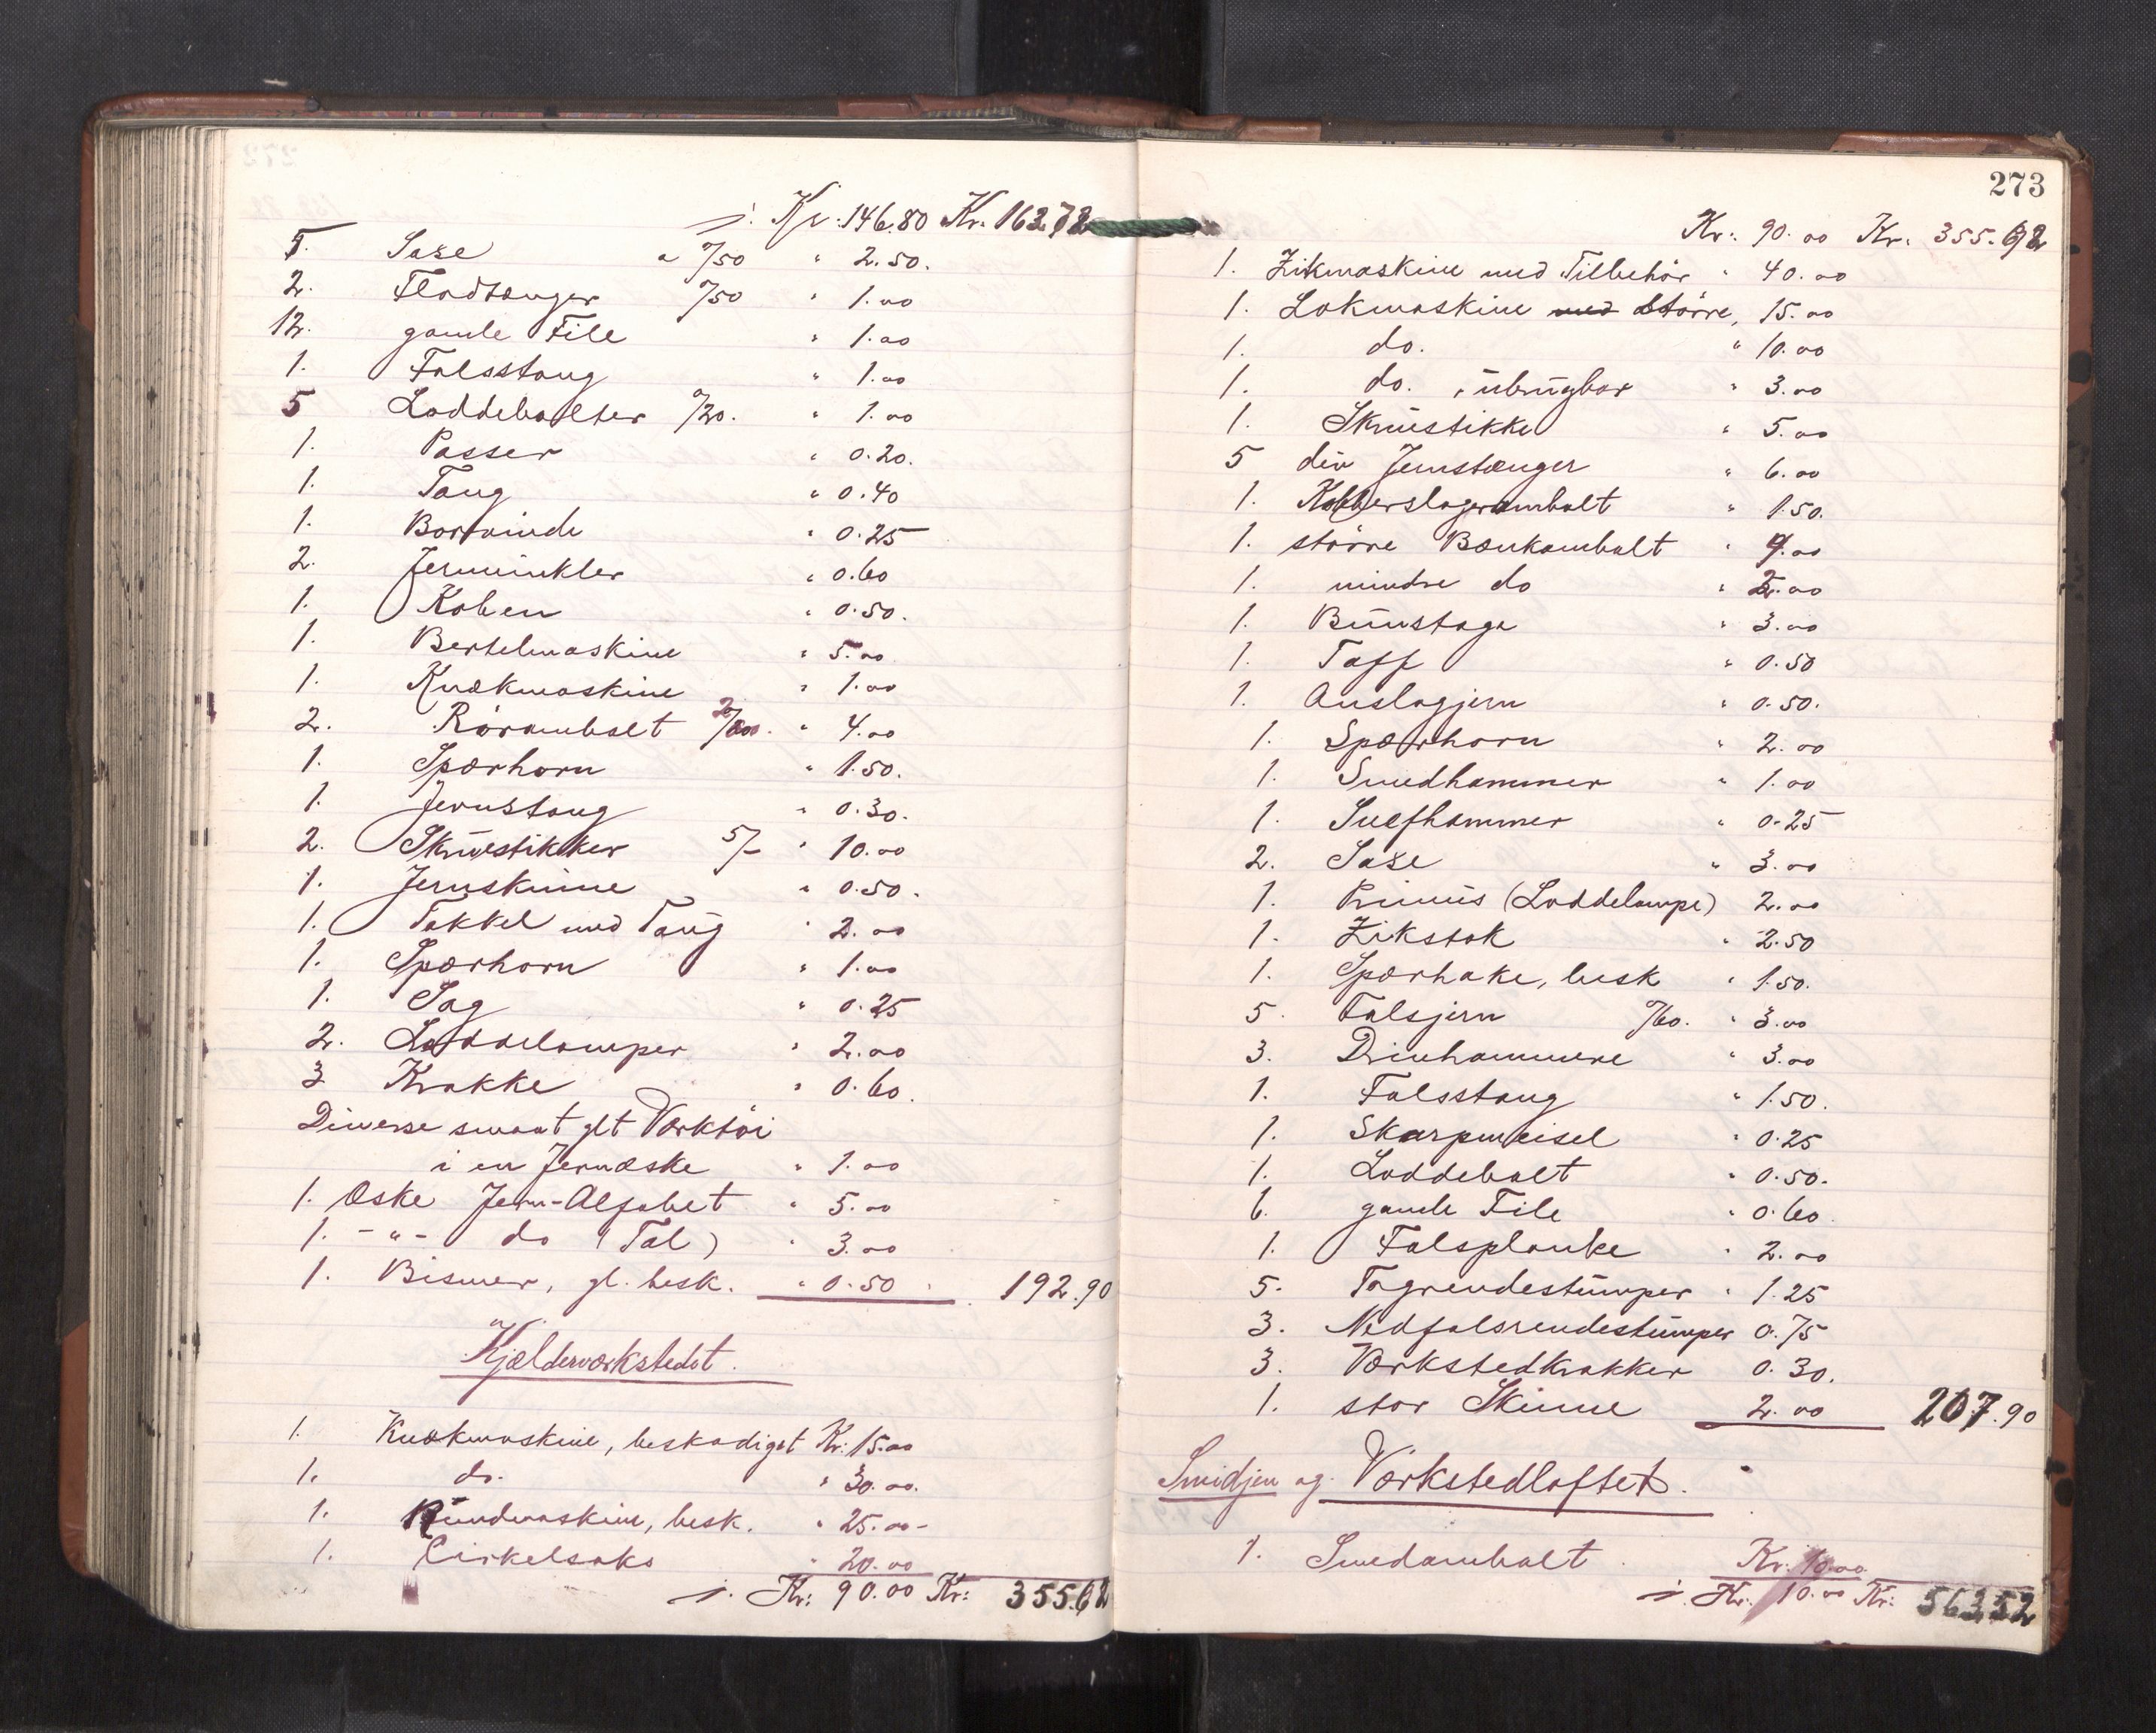 j. Kr. 146.80 Kr. 162.72
5. Saxe a %50 " 2.50.
2. Fladtænger %50 " 1.00
12. gamle File " 1.00
1. Falsstang " 1.00
5 Loddebolter %20. " 1.00
1. Passer " 0.20.
1. Tang " 0.40
1. Borvinde " 0.25
2. Jernvinkler " 0.60
1. Koben " 0.50.
1. Bertelmaskine " 5.00
1. Knækmaskine " 1.00
2. Rørambolt " 4.00
1. Spærhorn " 1.50.
1. Jernstang " 0.30.
2. Skruestikker 5/- " 10.00
1. Jernskinne " 0.50.
1. Takkel med Taug " 2.00
1. Spærhorn " 1.00
1. Sag " 0.25
2. Loddelamper " 2.00
3 Krakke " 0.60.
Diverse smaat glt Værktøi
i en Jernæske " 1.00
1. Æske Jern-Alfabet " 5.00
1. - " - do (Tal) " 3.00
1. Bismer, gl. besk. " 0.50. 192.90
Kjælderværkstedet.
1. Knækmaskine, beskadiget Kr: 15.00
1. do. " 30.00.
1. Rundmaskine, besk. " 25.00-
1. Cirkelsaks " 20.00
j. Kr: 90.00 Kr: 355.62
273
Kr: 90.00 Kr. 355.62
1. Zikmaskine med Tilbehør " 40.00
1. Lokmaskine med Større, 15.00
1. do. " 10.00
1. do. , ubrugbar " 3.00
1. Skruestikke " 5.00
5 div Jernstænger " 6.00
1. Kobberslagerambolt " 1.50.
1. større Bænkambolt " 4.00
1. mindre do " 2.00
1. Bunstage " 3.00
1. Taff " 0.50
1. Anslagjern " 0.50.
1. Spærhorn " 2.00
1. Smedhammer " 1.00
1. Suefhammer " 0.25
2. Saxe " 3.00
1. Primus (Loddelampe) 2.00
1. Zikstok " 2.50
1. Spærhake, besk " 1.50.
5. Falsjern %60. " 3.00
3. Drivhammere " 3.00
1. Falsstang " 1.50.
1. Skarpmeisel " 0.25
1. Loddebolt " 0.50.
6. gamle File " 0.60
1. Falsplanke " 2.00
5. Tagrendestumper " 1.25
3. Nedfalsrendestumper 0.75
3. Værkstedkrakker 0.30.
1. stor Skinne 2.00 207.90
Smidjen og Værkstedloftet.
1. Smedambolt Kr. 10.00
j. Kr. 10.00 Kr: 563.52